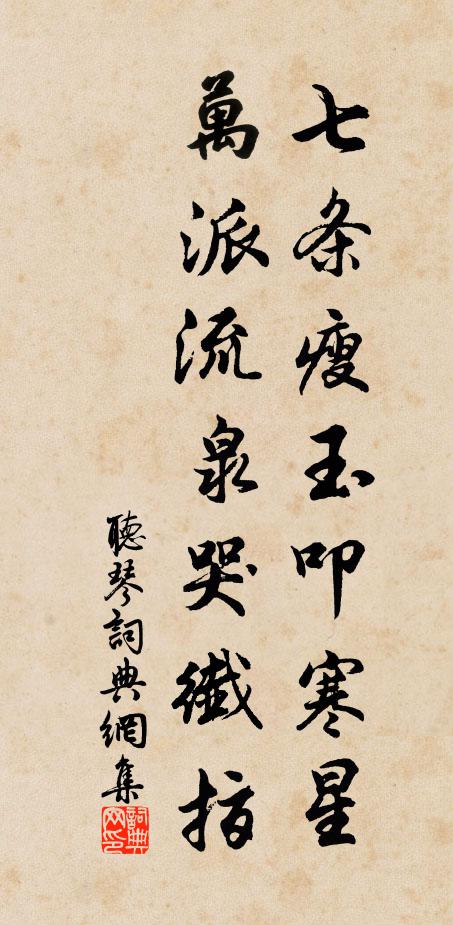 七条瘦玉叩寒星
萬派流泉哭纖指
聽琴詞典網集
詞典網印